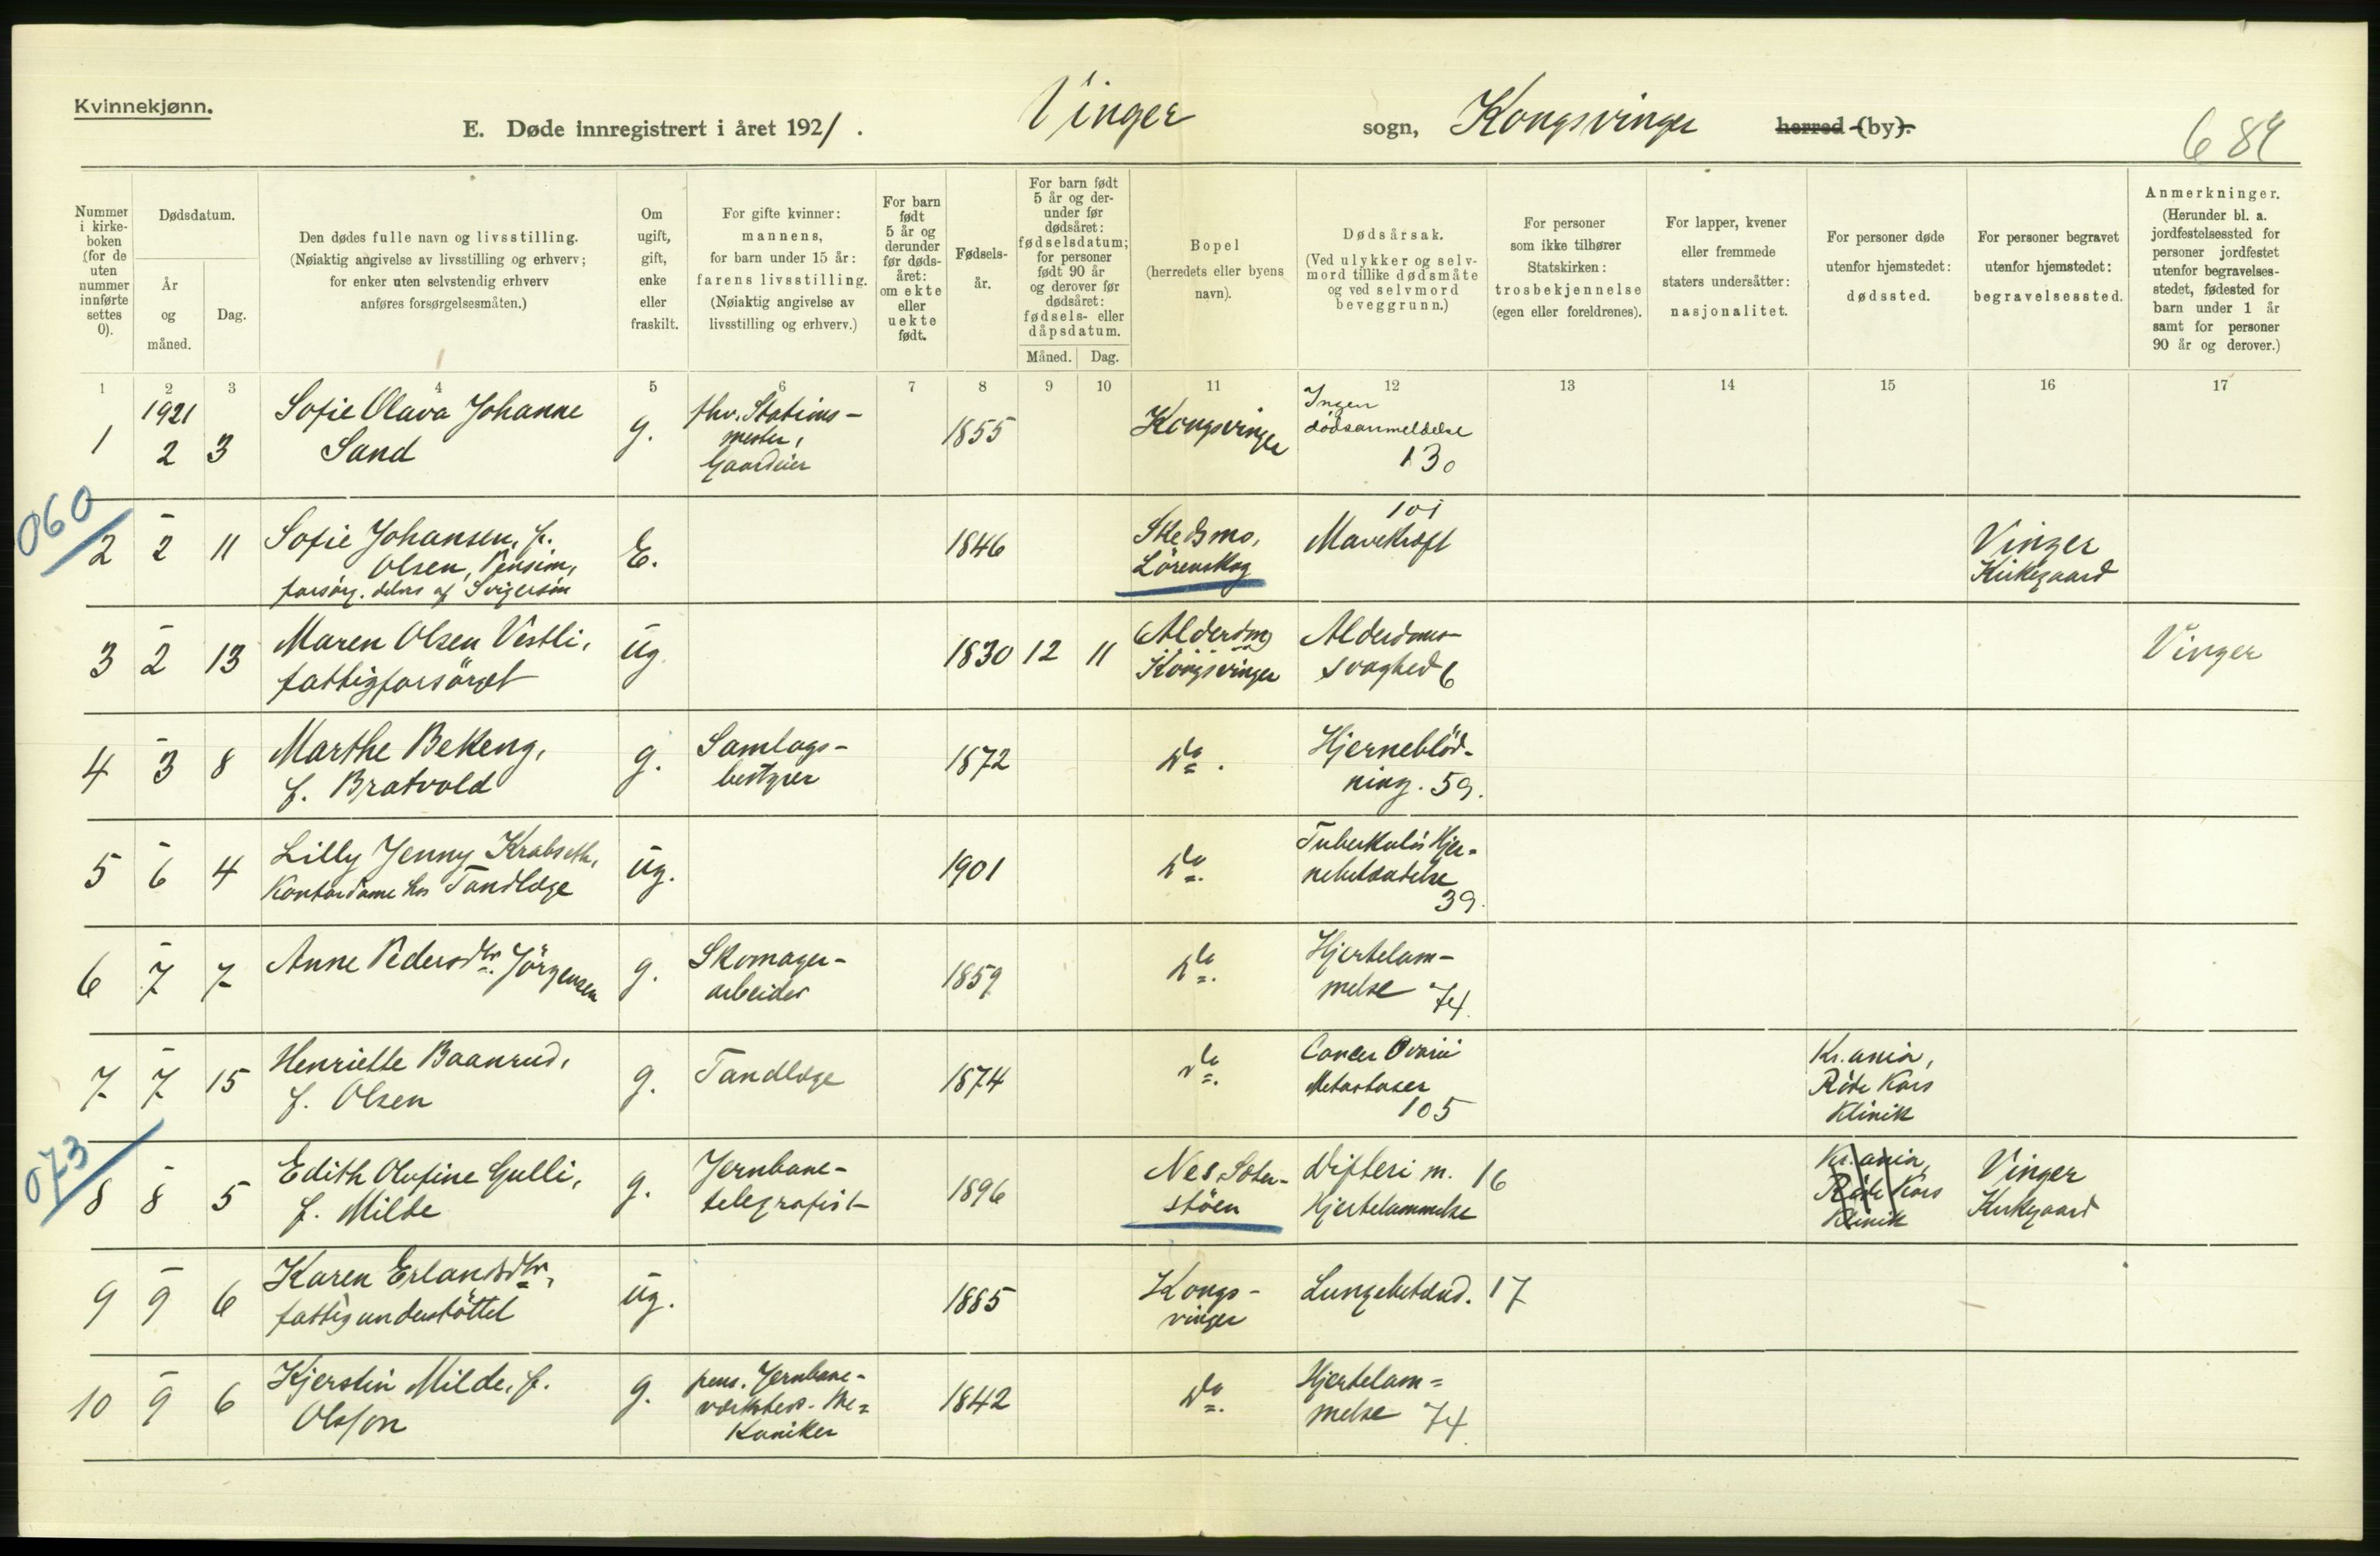 Kvinnekjønn.
E. Døde innregistrert i året 1921.
Vinger sogn, Kongsvinger herred (by).
689
Nummer i kirkeboken (for de uten nummer innførte settes 0).
Dødsdatum.
År og måned.
Dag.
Den dødes fulle navn og livsstilling.
(Nøiaktig angivelse av livsstilling og erhverv; for enker uten selvstendig erhverv anføres forsørgelsesmåten.)
Om ugift, gift, enke eller fraskilt.
For gifte kvinner: mannens, for barn under 15 år: farens livsstilling.
(Nøiaktig angivelse av livsstilling og erhverv.)
For barn født 5 år og derunder før dødsåret: om ekte eller uekte født.
Fødselsår.
For barn født 5 år og derunder før dødsåret: fødselsdatum; for personer født 90 år og derover før dødsåret: fødsels- eller dåpsdatum.
Måned. Dag.
Bopel
(herredets eller byens navn).
Dødsårsak.
(Ved ulykker og selvmord tillike dødsmåte og ved selvmord beveggrunn.)
For personer som ikke tilhører Statskirken: trosbekjennelse (egen eller foreldrenes).
For lapper, kvener eller fremmede staters undersåtter: nasjonalitet.
For personer døde utenfor hjemstedet: dødssted.
For personer begravet utenfor hjemstedet: begravelsessted.
Anmerkninger.
(Herunder bl. a. jordfestelsessted for personer jordfestet utenfor begravelsesstedet, fødested for barn under 1 år samt for personer 90 år og derover.)
1 2 3 4 5 6 7 8 9 10 11 12 13 14 15 16 17
1 1921 2 3 Sofie Olava Johanne Sand g. fhv. Stationsmester, Gaardeier 1855 Kongsvinger Ingen dödsanmeldelse 130
060
2 - 2 11 Sofie Johansen, f. Olsen, Pension, forsörg. delvis af Svigersön E. 1846 Skedsmo, Lörenskog 101 Mavekræft Vinger Kirkegaard
3 - 2 13 Maren Olsen Vestli, fattigforsörget ug. 1830 12 11 (Alderdom) Kongsvinger Alderdomssvaghed 6 Vinger
4 - 3 8 Marthe Bekeng, f. Bratvold g. Samlagsbestyrer 1872 do. Hjerneblödning. 59.
5 - 6 4 Lilly Jenny Krabseth, Kontordame hos Tandlæge ug. 1901 do. Tuberkulös Hjernebetændelse 39.
6 - 7 7 Anne Pedersdtr. Jörgensen g. Skomagerarbeider 1859 do. Hjertelammelse 74.
7 - 7 15 Henriette Baanrud, f. Olsen g. Tandlæge 1874 do. Cancer Ovarii Metastaser 105 Kr.ania, Röde Kors Klinik
073
8 - 8 5 Edith Olufine Gulli, f. Milde g. Jernbanetelegrafist 1896 Nes, Seterstöen Difteri m. 16 Hjertelammelse Kr.ania, Röde Kors Klinik Vinger Kirkegaard
9 - 9 6 Karen Erlandsdtr., fattigunderstöttet ug. 1885 Kongsvinger Lungebetænd. 17
10 - 9 6 Kjerstin Milde, f. Olsson g. pens. Jernbaneværksteds-Mekaniker 1842 do. Hjertelammelse 74.